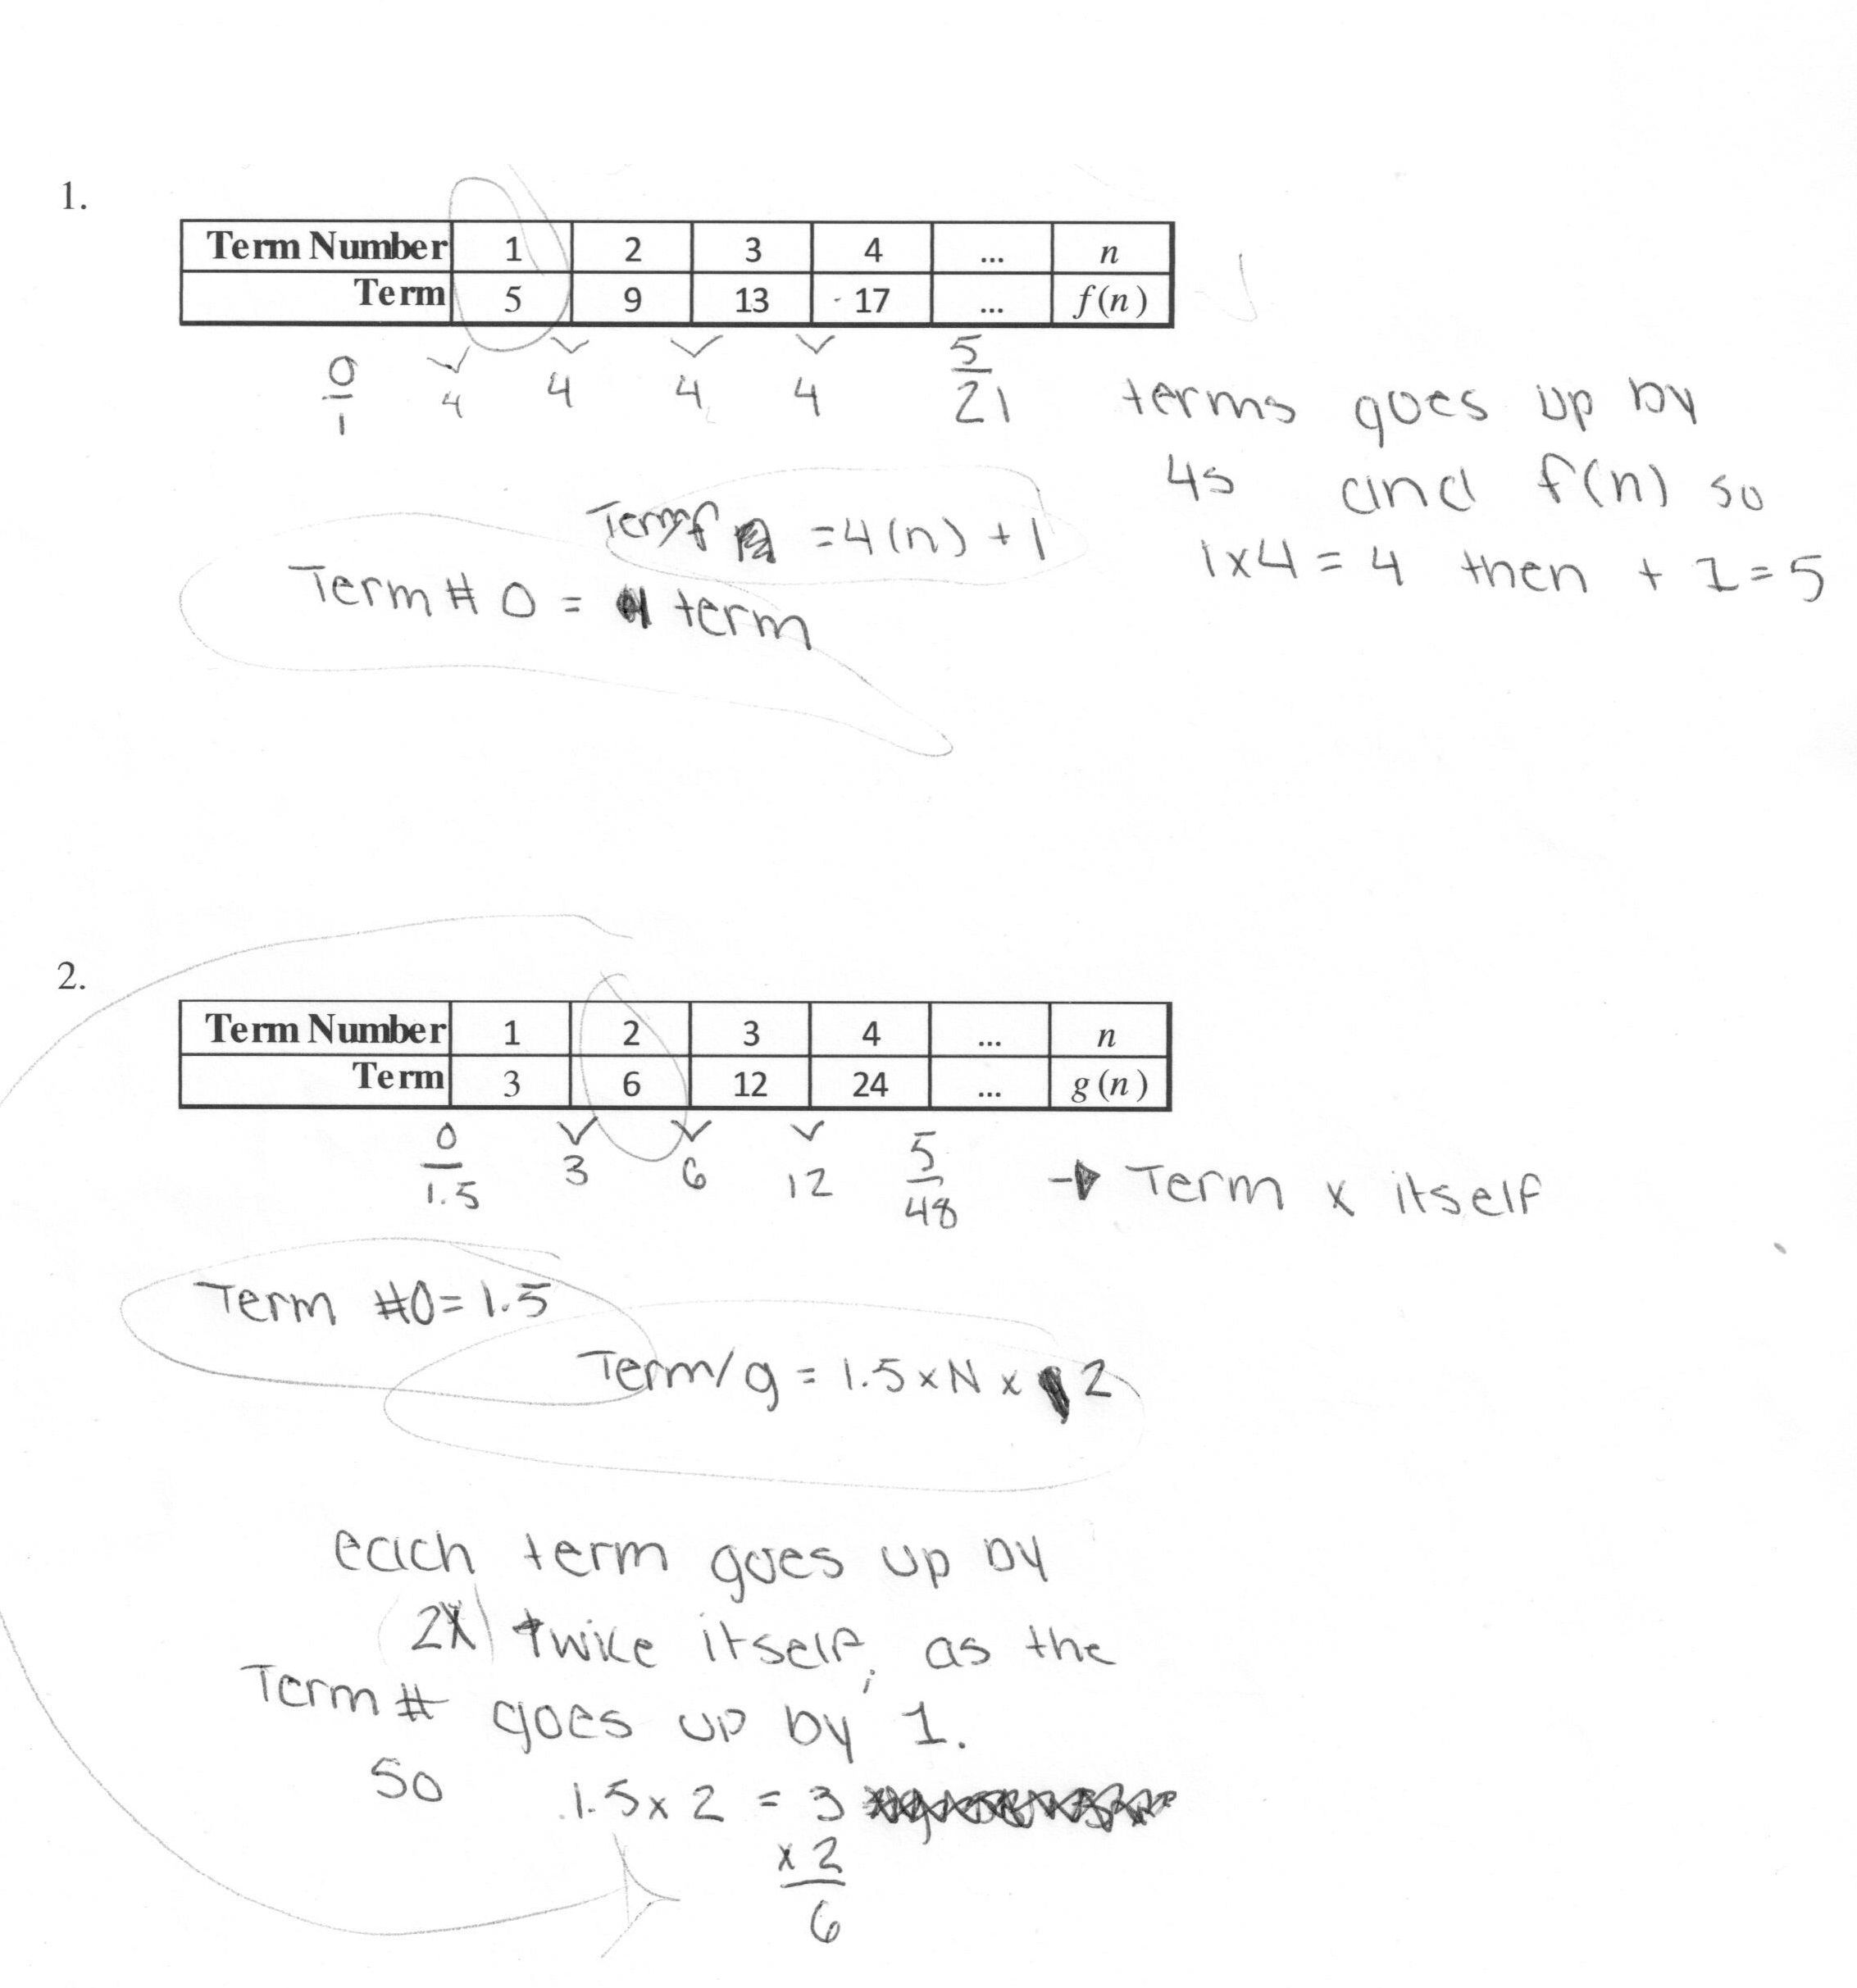 1.
Term Number 1 2 3 4 ... n
Term 5 9 13 17 ... f(n)
0/1 4 4 4 4 5/21
terms goes up by
4s and f(n) so
1x4 = 4 then + 1 = 5
Term/f = 4(n) + 1
Term # 0 = 1 term
2.
Term Number 1 2 3 4 ... n
Term 3 6 12 24 ... g(n)
0/1.5 3 6 12 5/48 → Term x itself
Term #0 = 1.5
Term/g = 1.5 x N x 2
each term goes up by
2x twice itself, as the
Term # goes up by 1.
So 1.5 x 2 = 3
x 2
6